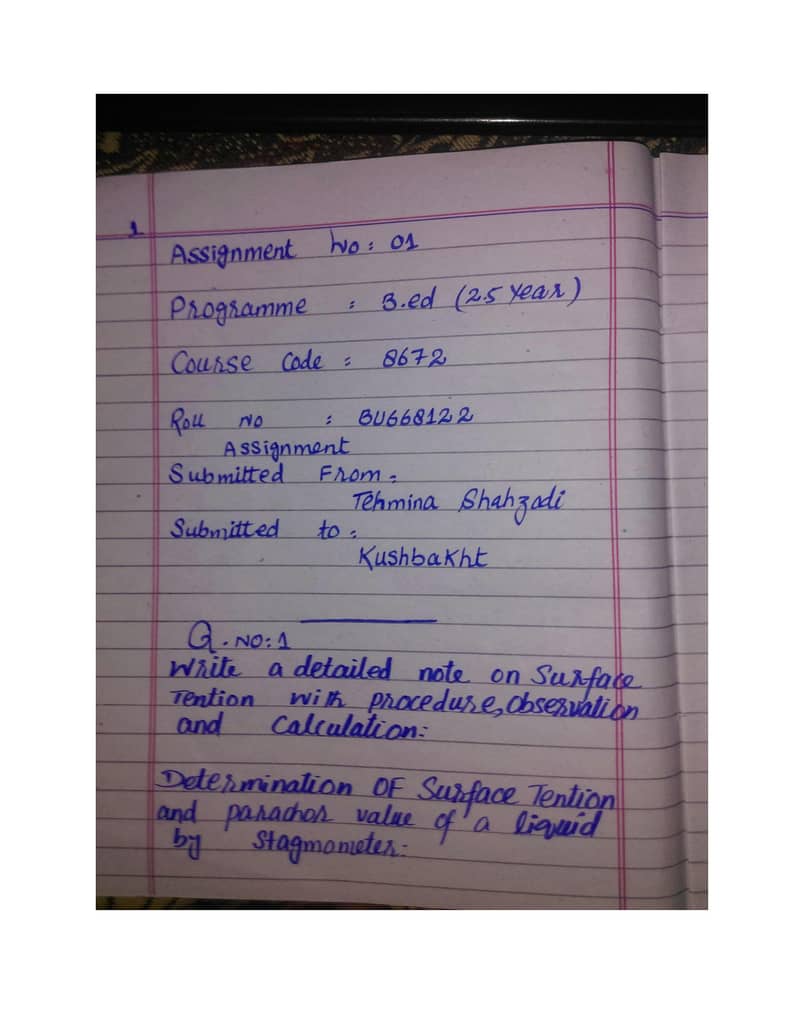 1
Assignment No : 01
Programme : B.ed (2.5 Year)
Course Code : 8672
Roll No : BU668122
Assignment
Submitted From :
Tehmina Shahzadi
Submitted to :
Kushbakht
Q. No:1
Write a detailed note on Surface
Tention with procedure, Observation
and Calculation:-
Determination OF Surface Tention
and parachor value of a liquid
by Stagmometer:-